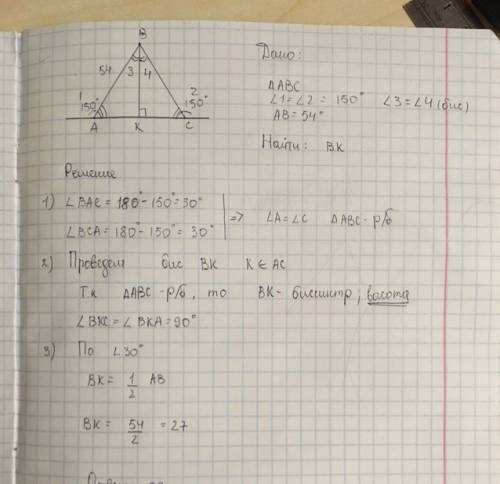 B
54 3 4
1 2
150° 150°
A K C
Дано:
ΔABC
∠1=∠2 = 150° ∠3=∠4 (бис)
AB=54°
Найти: BK
Решение
1) ∠BAC = 180°-150°=30°
∠BCA = 180°-150°= 30°
=> ∠A=∠C ΔABC-р/б
2) Проведем бис BK K∈AC
Т.к ΔABC-р/б, то BK- биссектр; высота
∠BKC=∠BKA=90°
3) По ∠30°
BK= 1/2 AB
BK= 54/2 =27